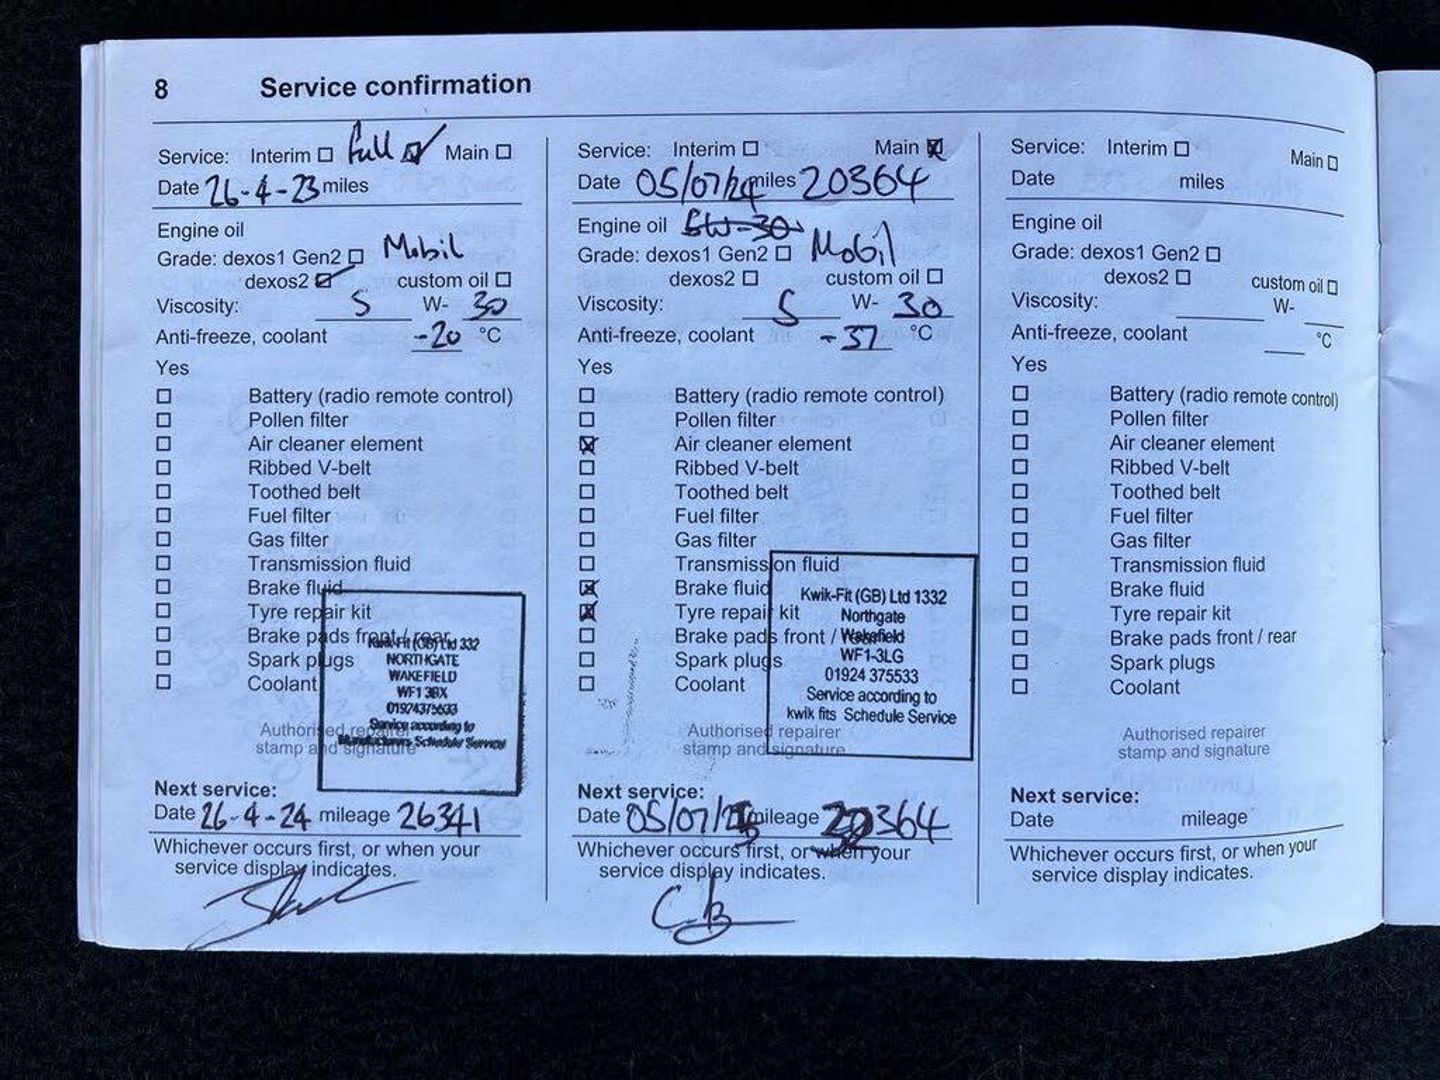 8 Service confirmation
Service: Interim Full Main
Date 26-4-23 miles
Engine oil
Grade: dexos1 Gen2 Mobil
dexos2 custom oil
Viscosity: 5 W- 30
Anti-freeze, coolant -20 °C
Yes
Battery (radio remote control)
Pollen filter
Air cleaner element
Ribbed V-belt
Toothed belt
Fuel filter
Gas filter
Transmission fluid
Brake fluid
Tyre repair kit
Brake pads front / rear
Spark plugs
Coolant
Kwik-Fit (GB) Ltd 332
NORTHGATE
WAKEFIELD
WF1 3BX
01924375533
Service according to
Manufacturers Schedule Service
Authorised repairer
stamp and signature
Next service:
Date 26-4-24 mileage 26341
Whichever occurs first, or when your
service display indicates.
Service: Interim Main
Date 05/07/24 miles 20364
Engine oil 5W-30
Grade: dexos1 Gen2 Mobil
dexos2 custom oil
Viscosity: 5 W- 30
Anti-freeze, coolant -37 °C
Yes
Battery (radio remote control)
Pollen filter
Air cleaner element
Ribbed V-belt
Toothed belt
Fuel filter
Gas filter
Transmission fluid
Brake fluid
Tyre repair kit
Brake pads front /
Spark plugs
Coolant
Kwik-Fit (GB) Ltd 1332
Northgate
Wakefield
WF1-3LG
01924 375533
Service according to
kwik fits Schedule Service
Authorised repairer
stamp and signature
Next service:
Date 05/07/25 mileage
Whichever occurs first, or when your
service display indicates.
Service: Interim Main
Date miles
Engine oil
Grade: dexos1 Gen2
dexos2 custom oil
Viscosity: W-
Anti-freeze, coolant °C
Yes
Battery (radio remote control)
Pollen filter
Air cleaner element
Ribbed V-belt
Toothed belt
Fuel filter
Gas filter
Transmission fluid
Brake fluid
Tyre repair kit
Brake pads front / rear
Spark plugs
Coolant
Authorised repairer
stamp and signature
Next service:
Date mileage
Whichever occurs first, or when your
service display indicates.